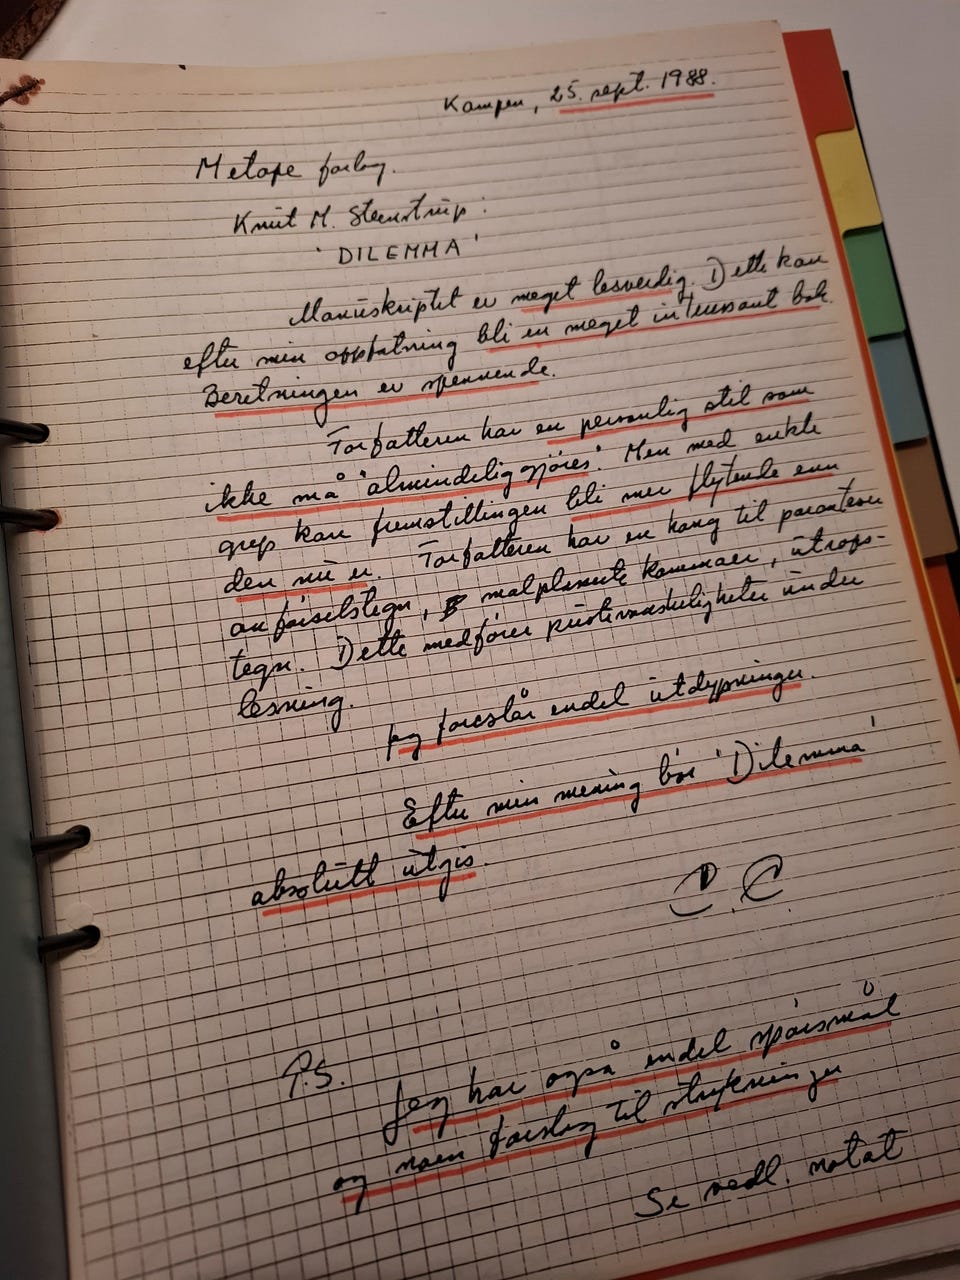 Kampen, 25. sept. 1988.
Metope forlag.
Knut M. Steenstrup:
'DILEMMA'
Manuskriptet er meget lesverdig. Dette kan
efter min oppfatning bli en meget interessant bok.
Beretningen er spennende.
Forfatteren har en personlig stil som
ikke må "almindeliggjöres". Men med enkle
grep kan fremstillingen bli mer flytende enn
den nu er. Forfatteren har en hang til paranteser
anførselstegn, malplaserte kommaer, utrops-
tegn. Dette medfører pustevanskeligheter under
lesning.
Jeg foreslår endel utdypninger.
Efter min mening bør 'Dilemma'
absolutt utgis.
P.S.
Jeg har også endel spørsmål
og noen forslag til strykninger
Se vedl. notat